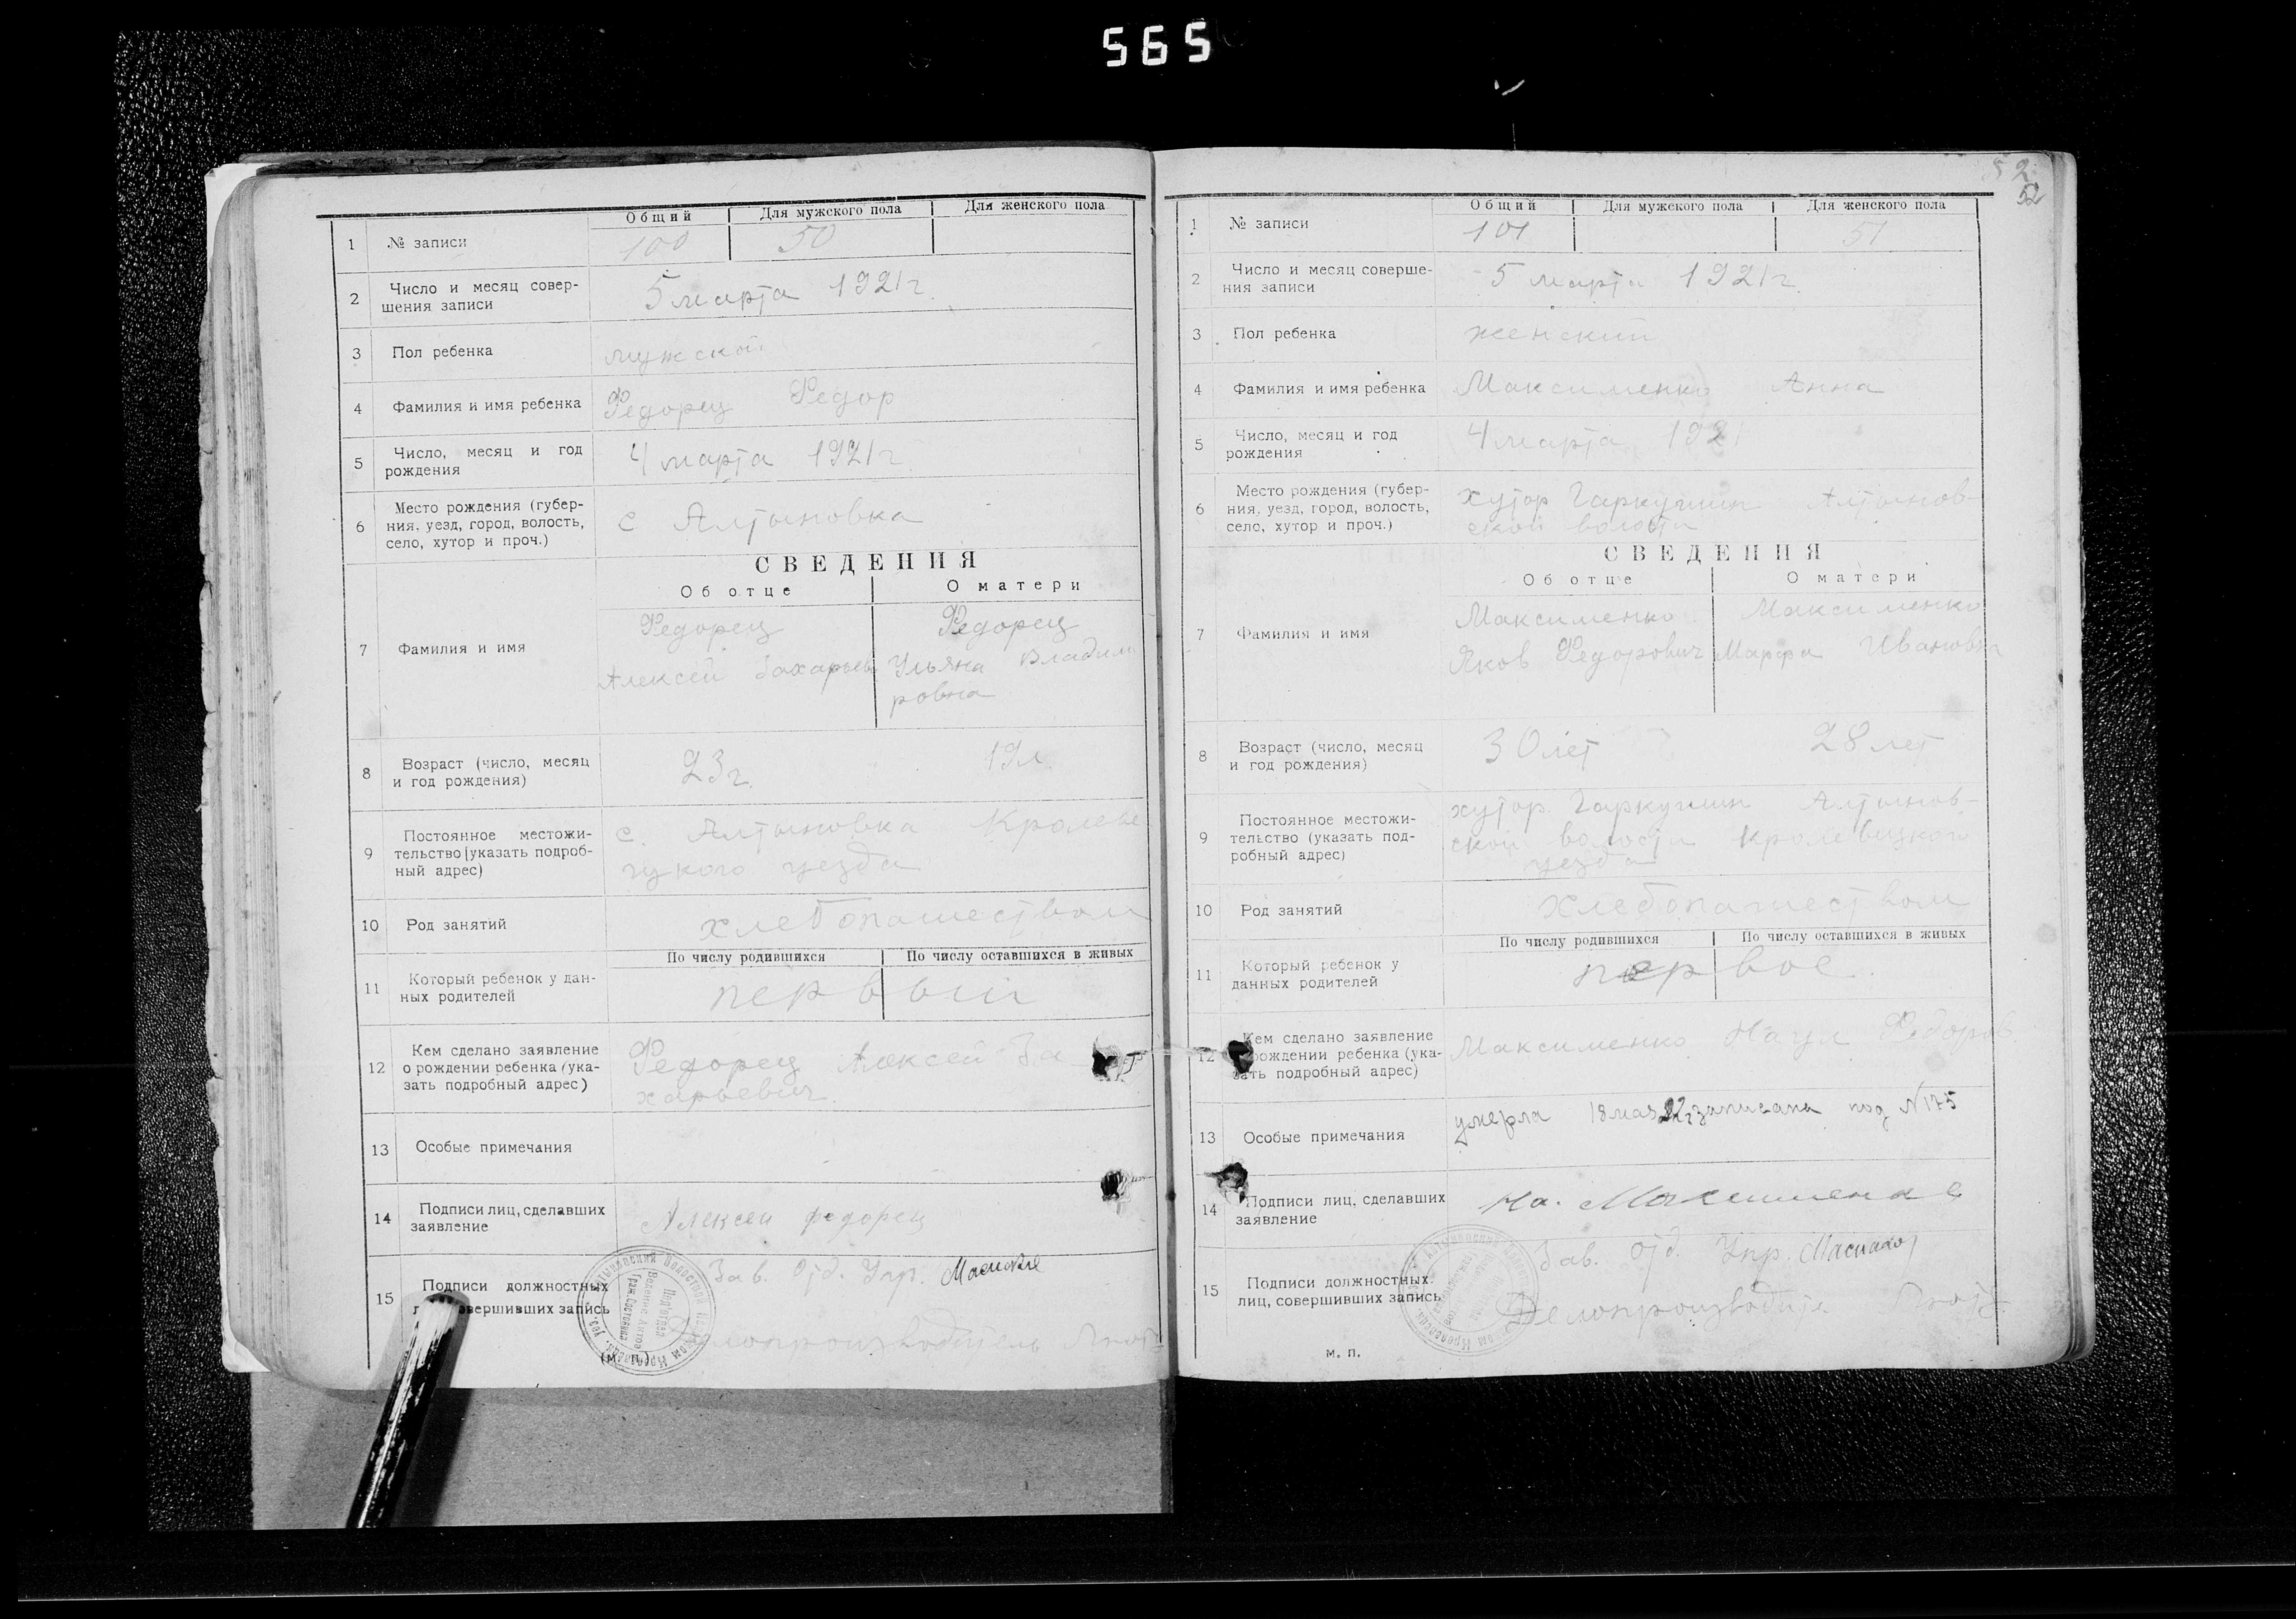 565
Общий Для мужского пола Для женского пола
1 № записи 100 50
2 Число и месяц совер-
шения записи
5 марта 1921 г.
3 Пол ребенка мужской
4 Фамилия и имя ребенка Федорец Федор
5 Число, месяц и год
рождения
4 марта 1921 г
6 Место рождения (губер-
ния, уезд, город, волость,
село, хутор и проч.)
с Алтыновка
СВЕДЕНИЯ
Об отце О матери
7 Фамилия и имя
Федорец Федорец
Алексей Захарьев Ульяна Владими
ровна
8 Возраст (число, месяц
и год рождения)
23 г. 19 л.
9 Постоянное местожи-
тельство [указать подроб-
ный адрес)
с. Алтыновка Кролеве
цкого уезда
10 Род занятий хлебопашеством
По числу родившихся По числу оставшихся в живых
11 Который ребенок у дан-
ных родителей
первый
12 Кем сделано заявление
о рождении ребенка (ука-
зать подробный адрес)
Федорец Алексей За
харьевич
13 Особые примечания
14 Подписи лиц, сделавших
заявление
Алексей федорец
15 Подписи должностных
совершивших запись
Зав. Отд. Упр.
Делопроизводитель
(м. п.)
52
52
Общий Для мужского пола Для женского пола
1 № записи 101 51
2 Число и месяц соверше-
ния записи
5 марта 1921 г.
3 Пол ребенка женский
4 Фамилия и имя ребенка Максименко Анна
5 Число, месяц и год
рождения
4 марта 1921
6 Место рождения (губер-
ния, уезд, город, волость,
село, хутор и проч.)
хутор Алтынов-
ской волости
СВЕДЕНИЯ
Об отце О матери
7 Фамилия и имя
Максименко Максименко
Яков Федорович Марфа Ивановна
8 Возраст (число, месяц
и год рождения)
30 лет 28 лет
9 Постоянное местожи-
тельство (указать под-
робный адрес)
хутор Алтынов-
ской волости Кролевецкого
уезда
10 Род занятий хлебопашеством
По числу родившихся По числу оставшихся в живых
11 Который ребенок у
данных родителей
первое
12 Кем сделано заявление
рождении ребенка (ука-
зать подробный адрес)
Максименко
13 Особые примечания
умерла 18 мая записана под № 175
14 Подписи лиц, сделавших
заявление
15 Подписи должностных
лиц, совершивших запись
Зав. Отд. Упр.
м. п.